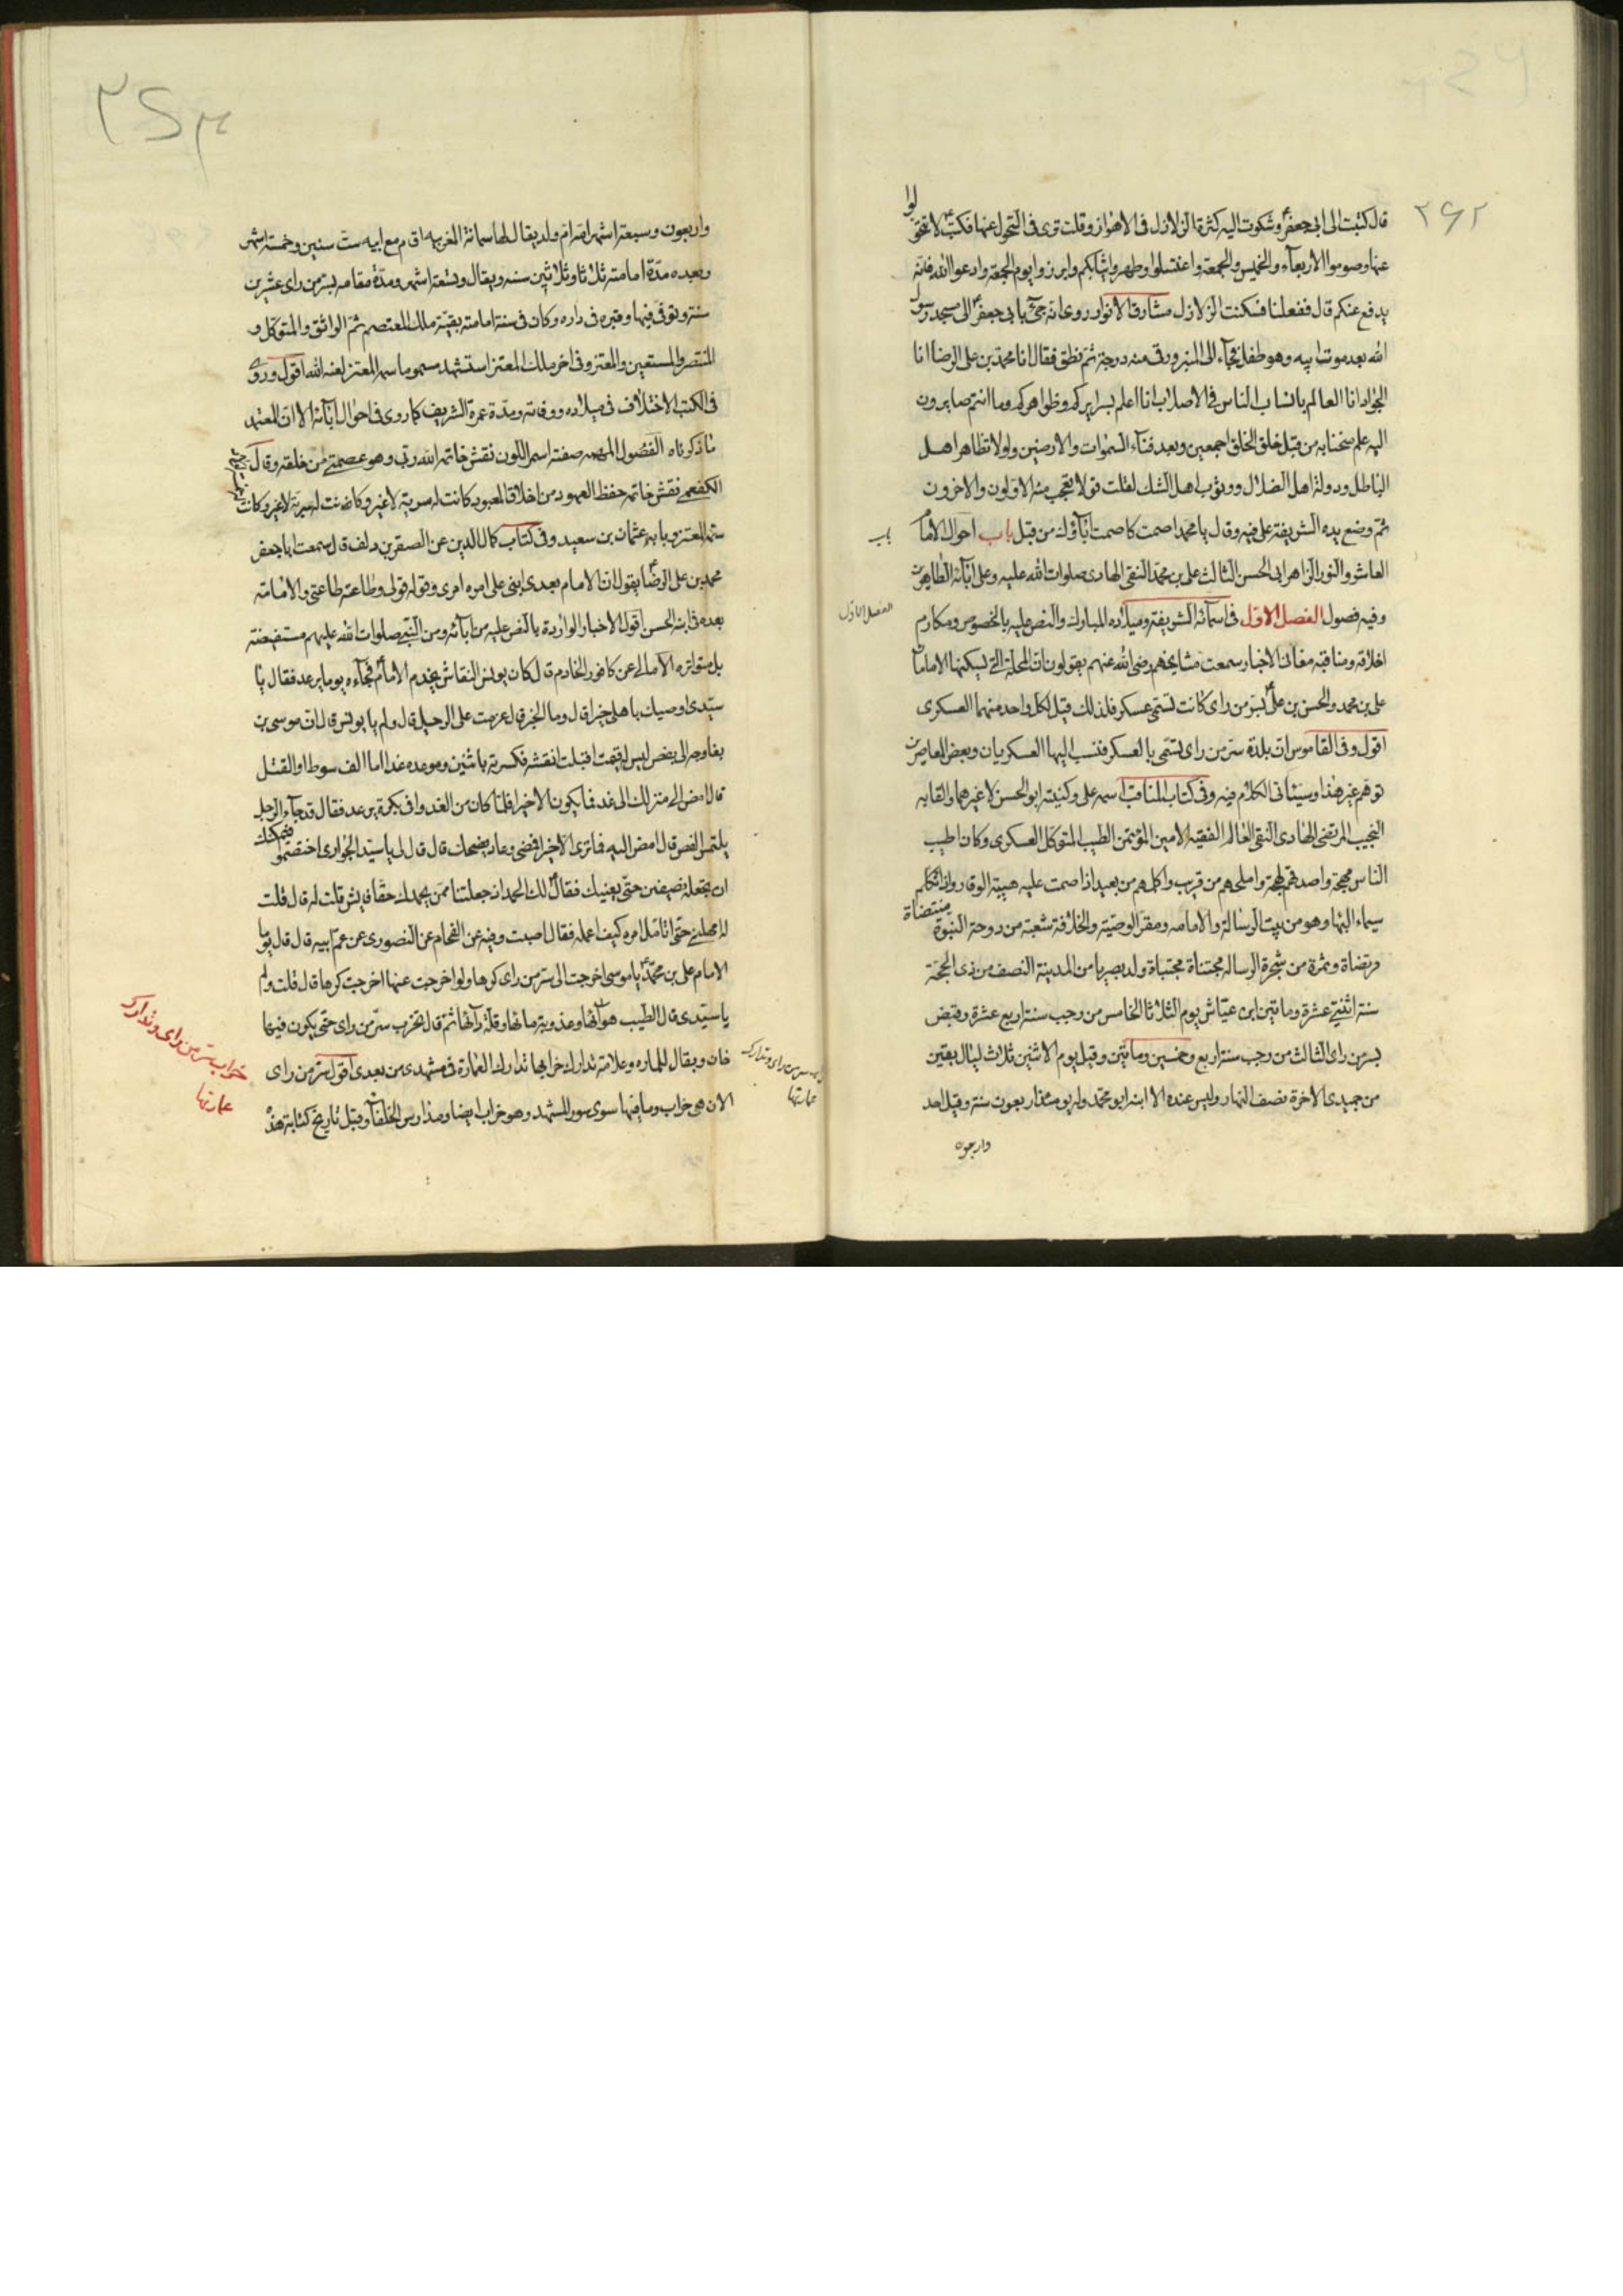 ٢٦٢
قال كتبت الى ابى جعفر ع وشكوت اليه كثرة الزلازل فى الاهواز وقلت ترى فى التحول عنها فكتب ع لا تتحولوا
عنها وصوموا الاربعاء والخميس والجمعة واغتسلوا وطهروا ثيابكم وابرزوا يوم الجمعة وادعوا الله فانه
يدفع عنكم قال ففعلنا فسكنت الزلازل مشارق الانوار روى انه جئ بابى جعفر ع الى مسجد رسول
الله بعد موت ابيه وهو طفل فجاء الى المنبر ورقى منه درجة ثم نطق فقال انا محمد بن على الرضا انا
الجواد انا العالم بانساب الناس فى الاصلاب انا اعلم بسرايركم وظواهركم وما انتم صايرون
اليه علم منحنا به من قبل خلق الخلق اجمعين وبعد فناء السموات والارضين ولولا تظاهر اهل
الباطل ودولة اهل الضلال ووثوب اهل الشك لقلت قولا يتعجب منه الاولون والاخرون
ثم وضع يده الشريفة على فيه وقال يا محمد اصمت كما صمت آباؤك من قبل باب احوال الامام
باب
العاشر والنور الزاهر ابى الحسن الثالث على بن محمد النقى الهادى صلوات الله عليه وعلى آبائه الطاهرين
وفيه فصول الفصل الاول فى اسمائه الشريفة وميلاده المبارك والنص عليه بالخصوص ومكارم
الفصل الاول
اخلاقه ومناقبه معانى الاخبار سمعت مشايخنا رضى الله عنهم يقولون ان المحلة التى يسكنها الامامان
على بن محمد والحسن بن على ع بسر من راى كانت تسمى عسكر فلذلك قيل لكل واحد منهما العسكرى
اقول وفى القاموس ان بلدة سر من راى تسمى بالعسكر فنسب اليها العسكريان وبعض المعاصرين
توهم غير هذا وسيئاتى الكلام فيه وفى كتاب المناقب اسمه على وكنيته ابو الحسن لا غيرهما والقابه
النجيب المرتضى الهادى النقى العالم الفقيه الامين المؤتمن الطيب المتوكل العسكرى وكان اطيب
الناس مهجة واصدقهم لهجة واملحهم من قريب واكملهم من بعيد اذا صمت عليه هيبة الوقار واذا تكلم
سيماء البهاء وهو من بيت الرسالة والامامه ومقر الوصية والخلافة شعبة من دوحة النبوة منتضاة
مرتضاة وثمرة من شجرة الرساله مجتناة مجتباة ولد بصريا من المدينة النصف من ذى الحجة
سنة اثنتى عشرة وماتين ابن عياش يوم الثلاثا الخامس من رجب سنة اربع عشرة وقبض
بسر من راى الثالث من رجب سنة اربع وخمسين وماتين وقيل يوم الاثنين ثلاث ليال بقين
من جميدى الاخرة نصف النهار وليس عنده الا ابنه ابو محمد وله يومئذ اربعون سنة وقيل احد
واربعون
٢٦٣
واربعون وسبعة اشهر امه ام ولد يقال لها سمانة المغربيه اقام مع ابيه ست سنين وخمسة اشهر
وبعده مدة امامته ثلاثا وثلاثين سنه ويقال وتسعة اشهر ومدة مقامه بسر من راى عشرين
سنة وتوفى فيها وقبره فى داره وكان فى سنة امامته بقية ملك المعتصم ثم الواثق والمتوكل و
المنتصر والمستعين والمعتز وفى اخر ملك المعتز استشهد مسموما سمه المعتز لعنه الله اقول وروى
فى الكتب الاختلاف فى ميلاده ووفاته ومدة عمره الشريف كما روى فى احوال آبائه الا ان المعتمد
ما ذكرناه الفصول المهمه صفته اسمر اللون نقش خاتمه الله ربى وهو عصمتى من خلقه وقال
الكفعمى نقش خاتمه حفظ العهود من اخلاق المعبود كانت له سرية لا غير وكانت
سمه المعتز وبابه عثمان بن سعيد وفى كتاب كمال الدين عن الصقر بن دلف قال سمعت ابا جعفر
محمد بن على الرضا ع يقول ان الامام بعدى ابنى على امره امرى وقوله قولى وطاعته طاعتى والامامة
بعده فى ابنه الحسن اقول الاخبار الواردة بالنص عليه من آبائه ومن النبى صلوات الله عليهم مستفيضة
بل متواتره الامالى عن كافور الخادم قال كان يونس النقاش يخدم الامام ع فجاءه يوما يرعد فقال يا
سيدى اوصيك باهلى خيرا قال وما الخبر قال عزمت على الرحيل قال ولم يا يونس قال ان موسى بن
بغا وجه الى بفص ليس له قيمت اقبلت انقشه فكسرته باثنين وموعده غدا اما الف سوط او القتل
قال امض الى منزلك الى غد فما يكون الا خيرا فلما كان من الغد وافى بكرة يرعد فقال قد جاء الرجل
يلتمس الفص قال امض اليه فما ترى الا خيرا فمضى وعاد يضحك قال قال لى يا سيد الجوارى اختصموا فيمكنك
ان تجعله نصفين حتى يغنيك فقال ع لك الحمد اذ جعلتنا ممن يحمدك حقا فايش قلت له قال قلت
له امهلنى حتى اتامل امره كيف اعمله فقال اصبت وفيه عن الفحام عن المنصورى عن عم ابيه قال قال يوما
الامام على بن محمد ع يا موسى اخرجت الى سر من راى كرها ولو اخرجت عنها اخرجت كرها قال قلت ولم
يا سيدى قال لطيب هوائها وعذوبة مائها وقلة دائها ثم قال تخرب سر من راى حتى يكون فيها
خان وبقال للماره وعلامة تدارك خرابها تدارك العمارة فى مشهدى من بعدى اقول سر من راى
الان هى خراب وما فيها سوى سور المشهد وهو خراب ايضا ومدارس الخلفاء وقبل تاريخ كتابة هذه
خراب سر من راى وتدارك
عمارتها
سر من راى وتدارك
عمارتها